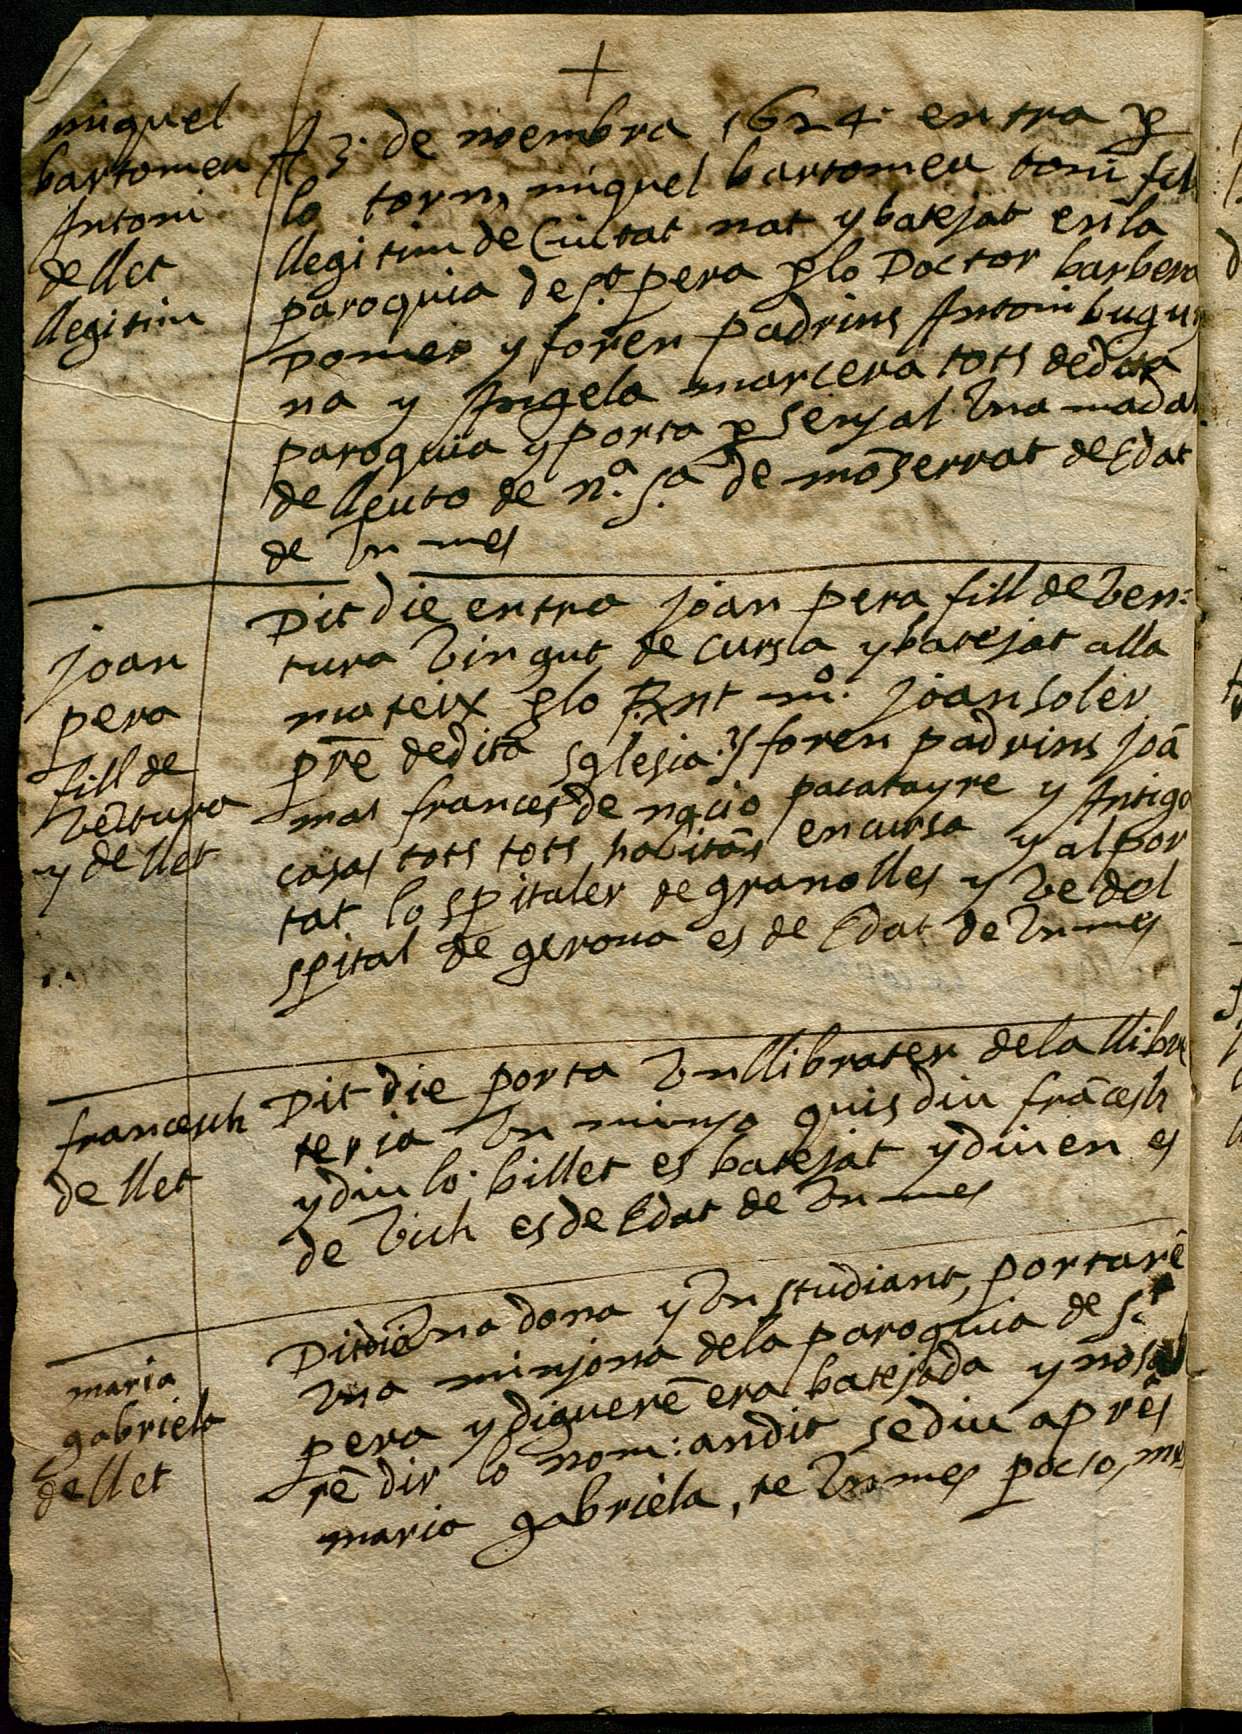 +
miquel
bartomeu
Antoni
de llet
llegitim
A 3. de noembra 1624. entra p
lo torn, miquel bartomeu toni fill
llegitim de Ciutat nat y batejat en la
paroquia de St pera plo Doctor barbera
Domer y foren padrins Antoni bugu
na y Angela marcera tots de dita
paroquia y porta p senyal Una mada
de lleuto de na. Sa. de mõserrat de Edat
de Un mes
joan
pera
fill de
Vẽtura
y de llet
Dit die entra joan pera fill de Ven:
tura Vingut de cursa y batejat alla
mateix plo Rnt mo. joan soler
prẽ de dita sglesia: y foren padrins joã
mas frances de nacio pacatayre y Antiga
casas tots tots habitãs en cursa y al por
tat lo spitaler de granolles y Ve del
spital de gerona es de Edat de Un mes
francesch
de llet
Dit die porta Un llibrater de la llibra
teria Un minyo quis diu frãcesch
y diu lo billet es batejat y diuen es
de Vich es de Edat de Un mes
maria
gabriela
de llet
Dit die Una dona y Un studiant, portarẽ
Una minyona de la paroquia de St
pera y diguerẽ era batejada y no sa
rẽ dir lo nom: an dit se diu aprẽs
maria gabriela, te Un mes poc to, mx